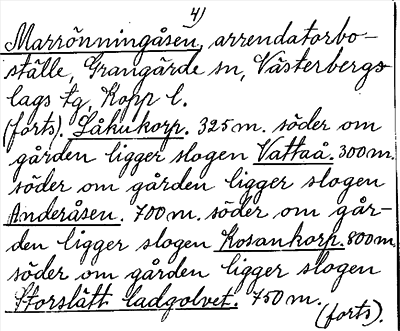 4)
Marrönningåsen, arrendatorbo-
ställe, Grangärde sn, Västerbergs-
lags tg, Kopp l.
(forts). Låkukorp. 325 m. söder om
gården ligger slogen Vattaå. 300 m.
söder om gården ligger slogen
Anderåsen. 700 m. söder om går-
den ligger slogen Kosankorp. 800 m.
söder om gården ligger slogen
Storslått ladgolvet. 750 m.
(forts).